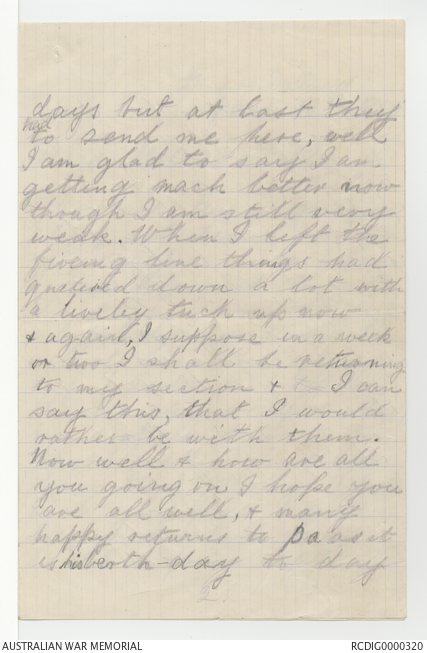 days but at last they
had
to send me here, well
I am glad to say I am
getting mach better now
though I am still very
weak. When I left the
fireing line things had
quietied down a lot with
a liveley tuck up now
& again, I suppose in a week
or two I shall be returning
to my section & I can
say this, that I would
rather be with them.
Now well & how are all
you going on I hope you
are all well, & many
happy returns to Pa as it
is his berth-day to day
2.
AUSTRALIAN WAR MEMORIAL
RCDIG0000320